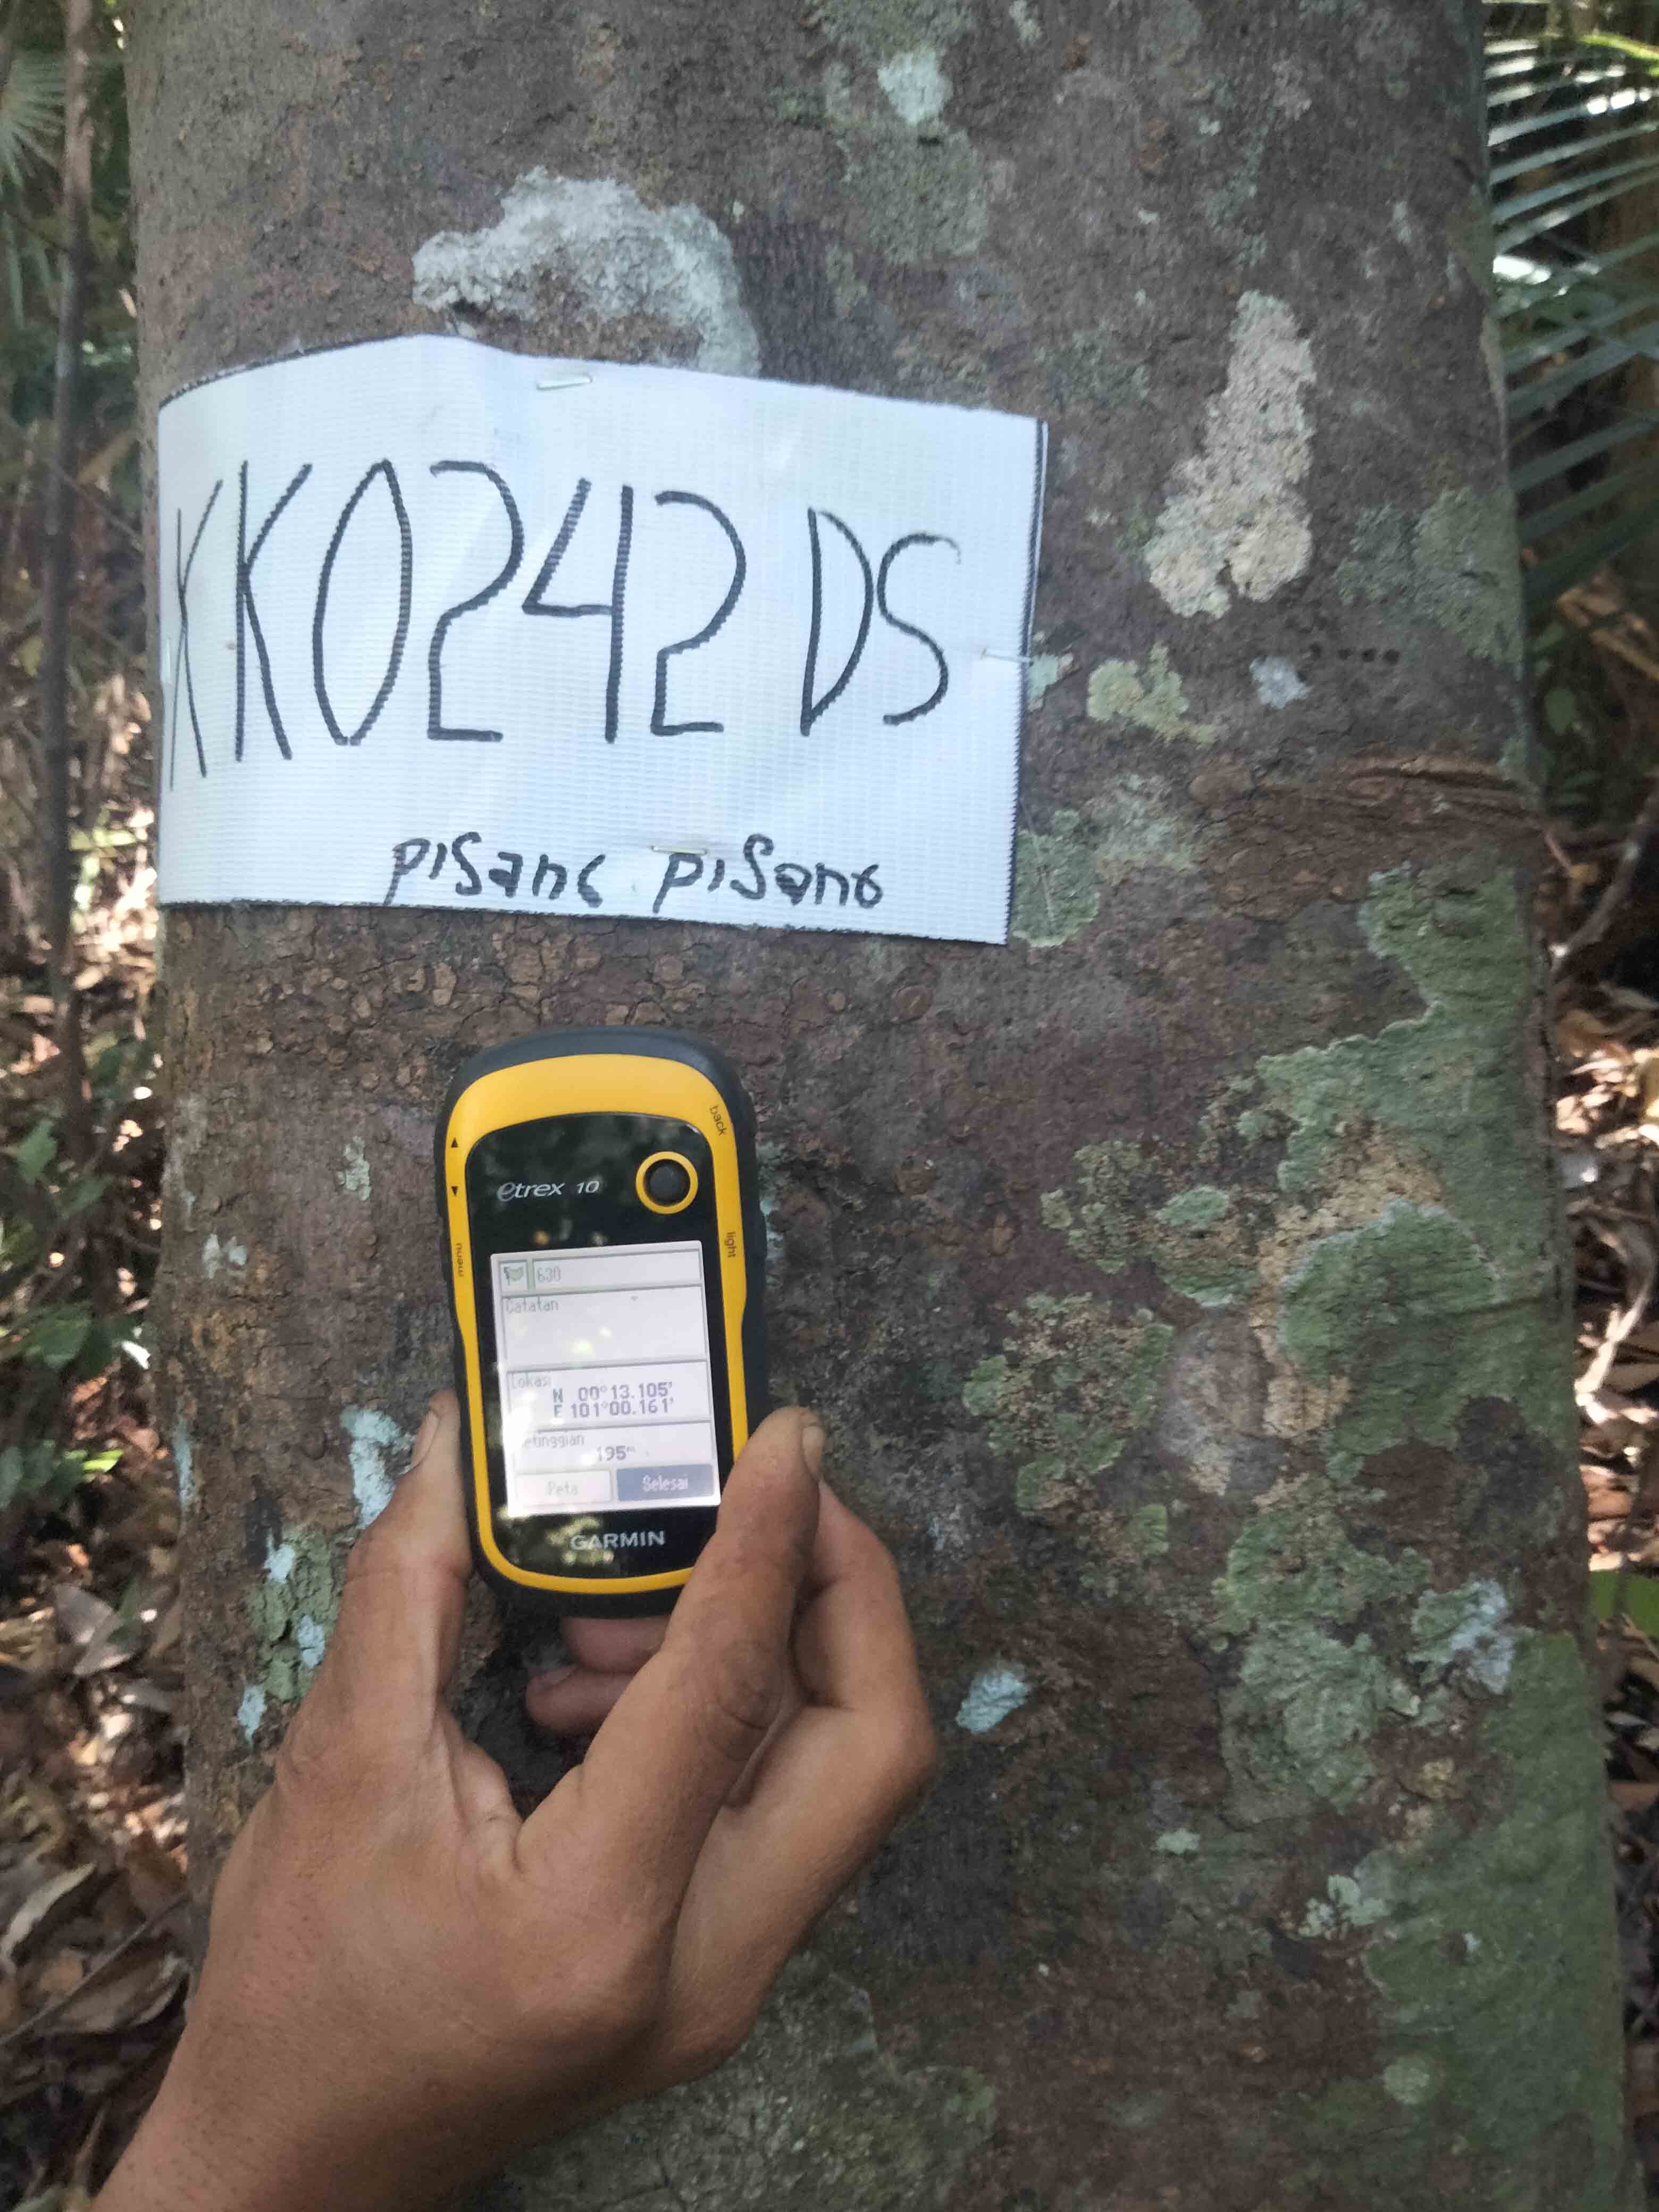 KK0242 DS
pisang pisang
back
etrex 10
light
menu
630
Catatan
Lokasi
N 00°13.105'
E 101°00.161'
etinggian
195m
Peta
Selesai
GARMIN